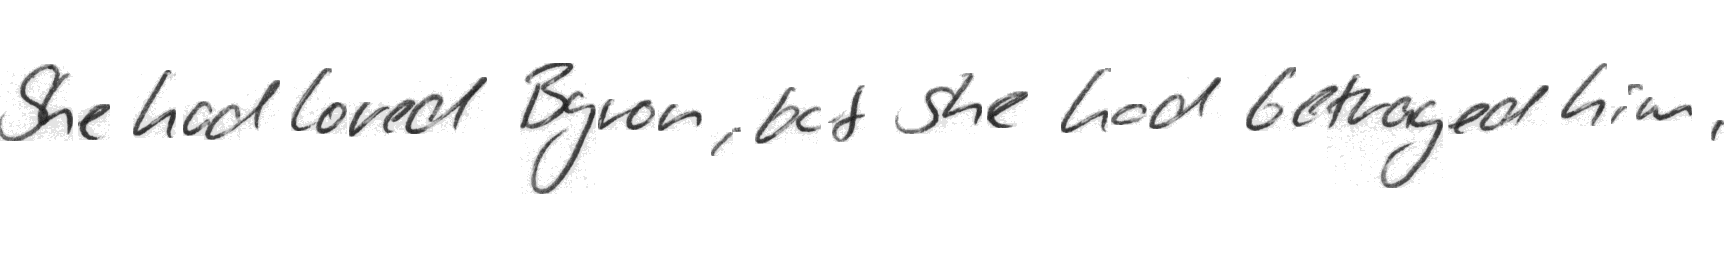 She had loved Byron, but she had betrayed him,